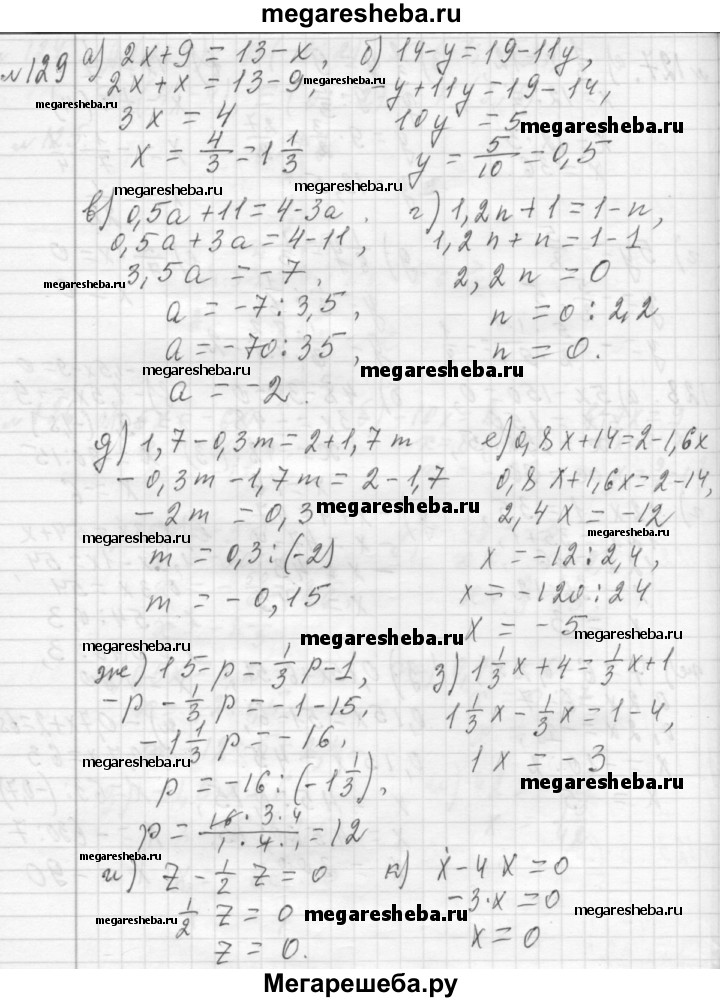 megaresheba.ru
№129 а) 2x+9=13-x, б) 14-y=19-11y,
2x+x=13-9, -y+11y=19-14,
3x=4 10y=5
megaresheba.ru megaresheba.ru
x=4/3=1 1/3 y=5/10=0,5
megaresheba.ru megaresheba.ru
в) 0,5a+11=4-3a. г) 1,2n+1=1-n,
0,5a+3a=4-11, 1,2n+n=1-1
3,5a=-7, 2,2n=0
megaresheba.ru
a=-7:3,5, n=0:2,2
a=-70:35, n=0.
megaresheba.ru megaresheba.ru
a=-2.
д) 1,7-0,3m=2+1,7m е) 0,8x+14=2-1,6x
-0,3m-1,7m=2-1,7 0,8x+1,6x=2-14,
megaresheba.ru
-2m=0,3 2,4x=-12
megaresheba.ru megaresheba.ru
m=0,3:(-2) x=-12:2,4,
m=-0,15 x=-120:24
x=-5
megaresheba.ru megaresheba.ru megaresheba.ru
ж) 15-p=1/3p-1, з) 1 1/3x+4=1/3x+1
-p-1/3p=-1-15, 1 1/3x-1/3x=1-4,
-1 1/3p=-16, 1x=-3
megaresheba.ru megaresheba.ru
p=-16:(-1 1/3),
p=16·3·4/1·4·1=12
megaresheba.ru
и) z-1/2z=0 к) x-4x=0
1/2z=0 -3·x=0
megaresheba.ru megaresheba.ru megaresheba.ru
z=0. x=0
Мегарешеба.ру